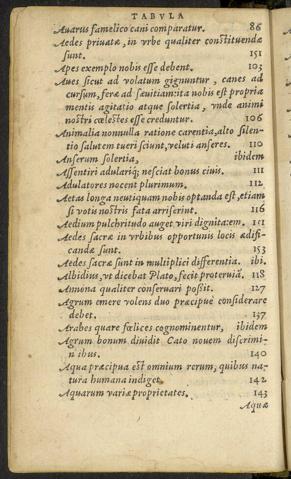 TABVLA
Auarus famelico cani comparatur. 86
Aedes priuatæ, in vrbe qualiter constituendæ
sunt. 151
Apes exemplo nobis esse debent. 103
Aues sicut ad volatum gignuntur, canes ad
cursum, feræ ad sæuitiam: ita nobis est propria
mentis agitatio atque solertia, vnde animi
nostri cœlestes esse creduntur. 106
Animalia nonnulla ratione carentia, alto silen-
tio salutem tueri sciunt, veluti anseres. 110
Anserum solertia, ibidem
Assentiri adulariq; nesciat bonus ciuis. 111
Adulatores nocent plurimum. 112
Aetas longa neutiquam nobis optanda est, etiam
si votis nostris fata arriserint. 116
Aedium pulchritudo auget viri dignitatem. 151
Aedes sacræ in vrbibus opportunis locis ædifi-
candæ sunt. 153
Aedes sacræ sunt in multiplici differentia. ibi.
Albidius, vt dicebat Plato, fecit proteruiã. 118
Annona qualiter conseruari possit. 127
Agrum emere volens duo præcipuè considerare
debet. 137
Arabes quare fœlices cognominentur, ibidem
Agrum bonum diuidit Cato nouem discrimi-
nibus. 140
Aqua præcipua est omnium rerum, quibus na-
tura humana indiget. 142
Aquarum variæ proprietates. 143
Aquæ